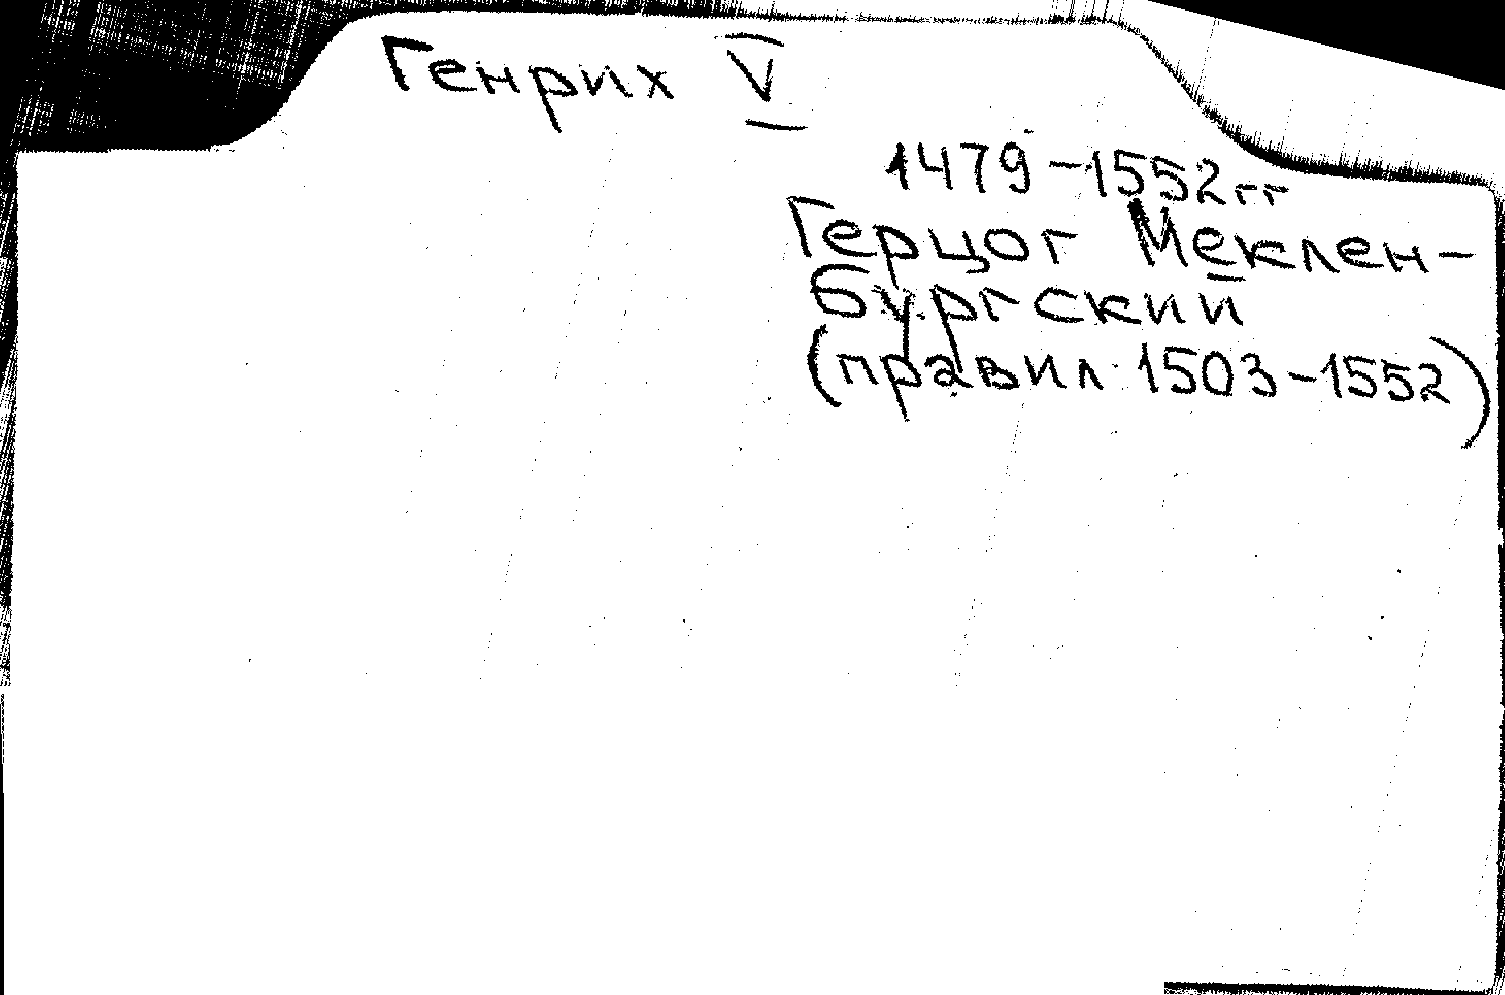 Генрих V
1479-1552гг
Герцог Меклен-
бургский
(правил 1503-1552)